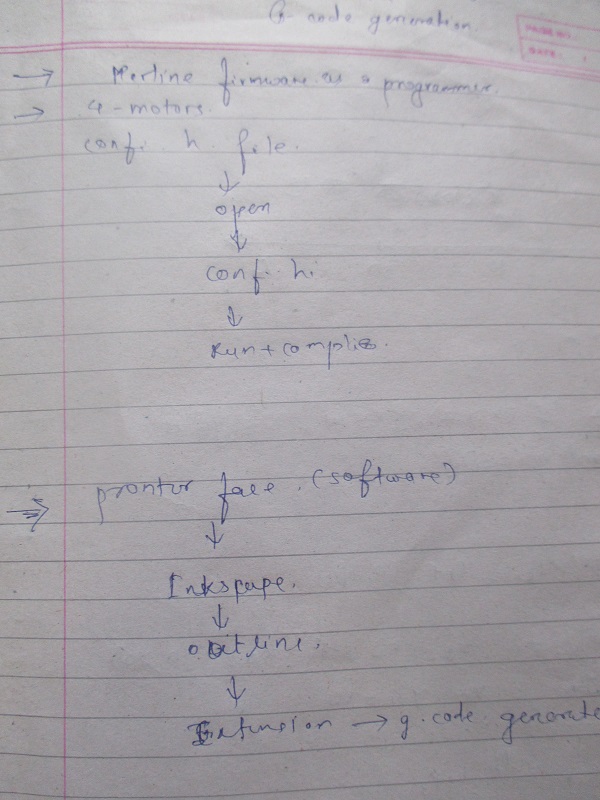 G-code generation.
PAGE NO.
DATE:
→ Merline firmware as a programmer.
→ 4-motors.
confi. h. file.
↓
open
↓
confi. h.
↓
Run + complie.
⇒ pronter face. (software)
↓
Inkspape.
↓
outline.
↓
Extension → g.code generate